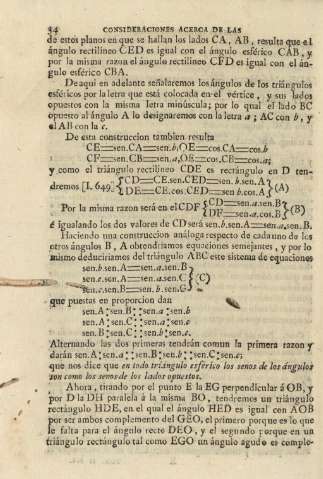 34 CONSIDERACIONES ACERCA DE LAS
de estos planos en que se hallan los lados CA, AB, resulta que el
ángulo rectilíneo CED es igual con el ángulo esférico CAB, y
por la misma razon el ángulo rectilíneo CFD es igual con el án-
gulo esférico CBA.
De aquí en adelante señalaremos los ángulos de los triángulos
esféricos por la letra que está colocada en el vértice, y sus lados
opuestos con la misma letra minúscula; por lo qual el lado BC
opuesto al ángulo A lo designaremos con la letra a; AC con b, y
el AB con la c.
De esta construccion tambien resulta
CE=sen.CA=sen.b, OE=cos.CA=cos.b
CF=sen.CB=sen.a, OF=cos.CB=cos.a;
y como el triángulo rectilíneo CDE es rectángulo en D ten-
dremos [I. 649] {CD=CE.sen.CED=sen.b.sen.A} (A)
{DE=CE.cos.CED=sen.b.cos.A}
Por la misma razon será en el CDF {CD=sen.a.sen.B} (B)
{DF=sen.a.cos.B}
é igualando los dos valores de CD será sen.b.sen.A=sen.a.sen.B.
Haciendo una construccion análoga respecto de cada uno de los
otros ángulos B, A obtendriamos equaciones semejantes, y por lo
mismo deduciriamos del triángulo ABC este sistema de equaciones
sen.b.sen.A=sen.a.sen.B
sen.c.sen.A=sen.a.sen.C } (C)
sen.c.sen.B=sen.b.sen.C
que puestas en proporcion dan
sen.A:sen.B::sen.a:sen.b
sen.A:sen.C::sen.a:sen.c
sen.B:sen.C::sen.b:sen.c.
Alternando las dos primeras tendrán comun la primera razon y
darán sen.A:sen.a::sen.B:sen.b::sen.C:sen.c;
que nos dice que en todo triángulo esférico los senos de los ángulos
son como los senos de los lados opuestos.
Ahora, tirando por el punto E la EG perpendicular á OB, y
por D la DH paralela á la misma BO, tendremos un triángulo
rectángulo HDE, en el qual el ángulo HED es igual con AOB
por ser ambos complemento del GEO, el primero porque es lo que
le falta para el ángulo recto DEO, y el segundo porque en un
triángulo rectángulo tal como EGO un ángulo agudo es comple-